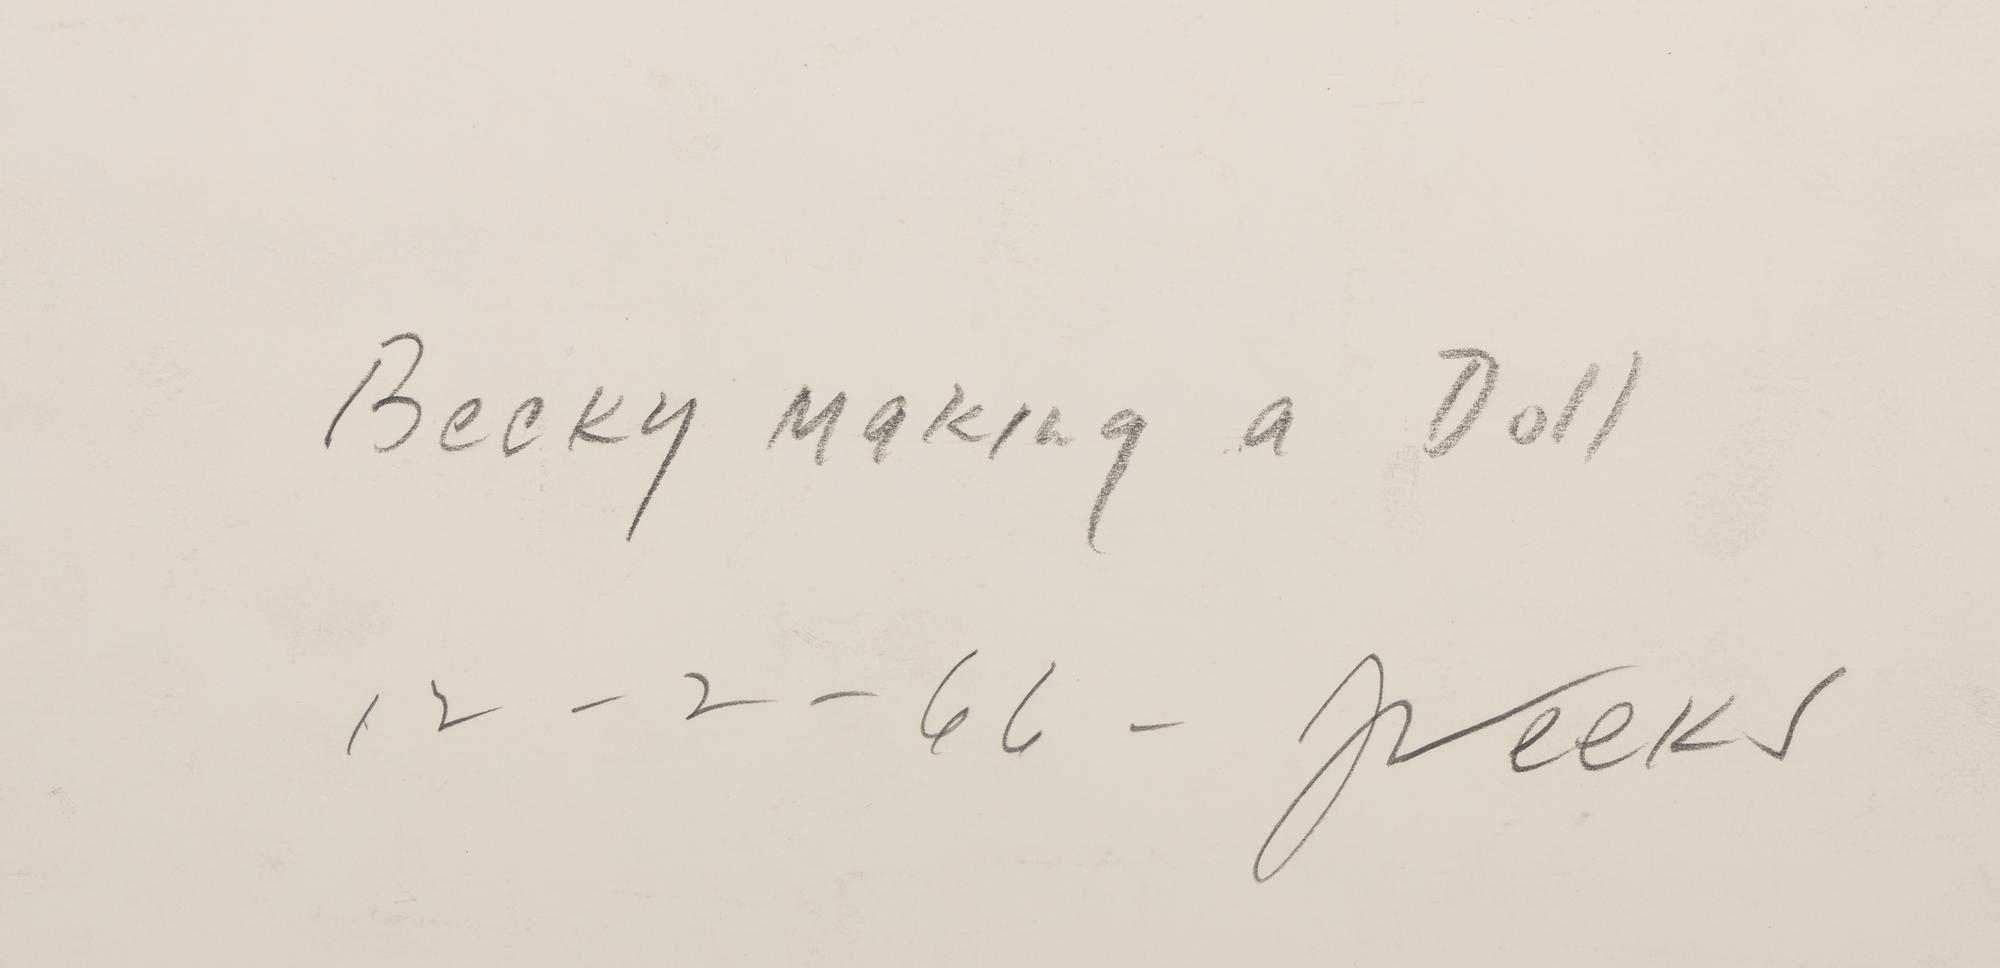 Becky Making a Doll
12-2-66- JWeeks